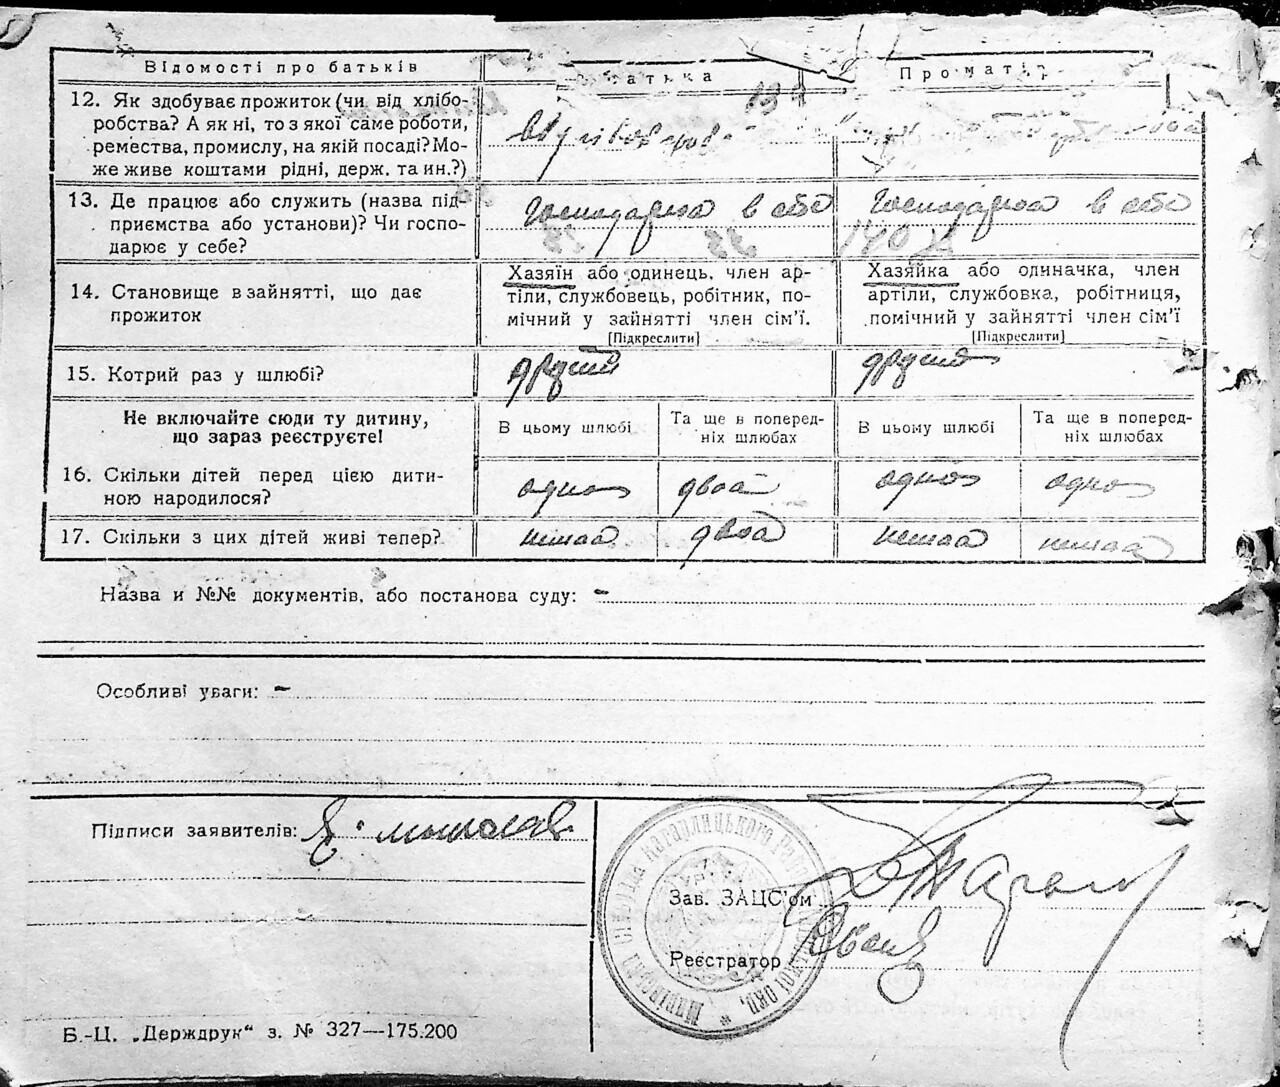 Відомості про батьків
батька
Про матір
12. Як здобуває прожиток (чи від хлібо-
робства? А як ні, то з якої саме роботи,
ремества, промислу, на якій посаді? Мо-
же живе коштами рідні, держ. та ин.?)
13. Де працює або служить (назва під-
приємства або установи)? Чи госпо-
дарює у себе?
Господарює в себе
Господарює в себе
14. Становище в зайнятті, що дає
прожиток
Хазяїн або одинець, член ар-
тіли, службовець, робітник, по-
мічний у зайнятті член сім'ї.
[Підкреслити]
Хазяйка або одиначка, член
артіли, службовка, робітниця,
помічний у зайнятті член сім'ї
[Підкреслити]
15. Котрий раз у шлюбі?
другий
другий
Не включайте сюди ту дитину,
що зараз реєструєте!
В цьому шлюбі
Та ще в поперед-
ніх шлюбах
В цьому шлюбі
Та ще в поперед-
ніх шлюбах
16. Скільки дітей перед цією дити-
ною народилося?
одно
двоє
одно
одно
17. Скільки з цих дітей живі тепер?
немає
двоє
немає
немає
Назва и №№ документів, або постанова суду: –
Особливі уваги: –
Підписи заявителів:
Зав. ЗАЦС'ом
Реєстратор
Б.-Ц. „Держдрук“ з. № 327—175.200